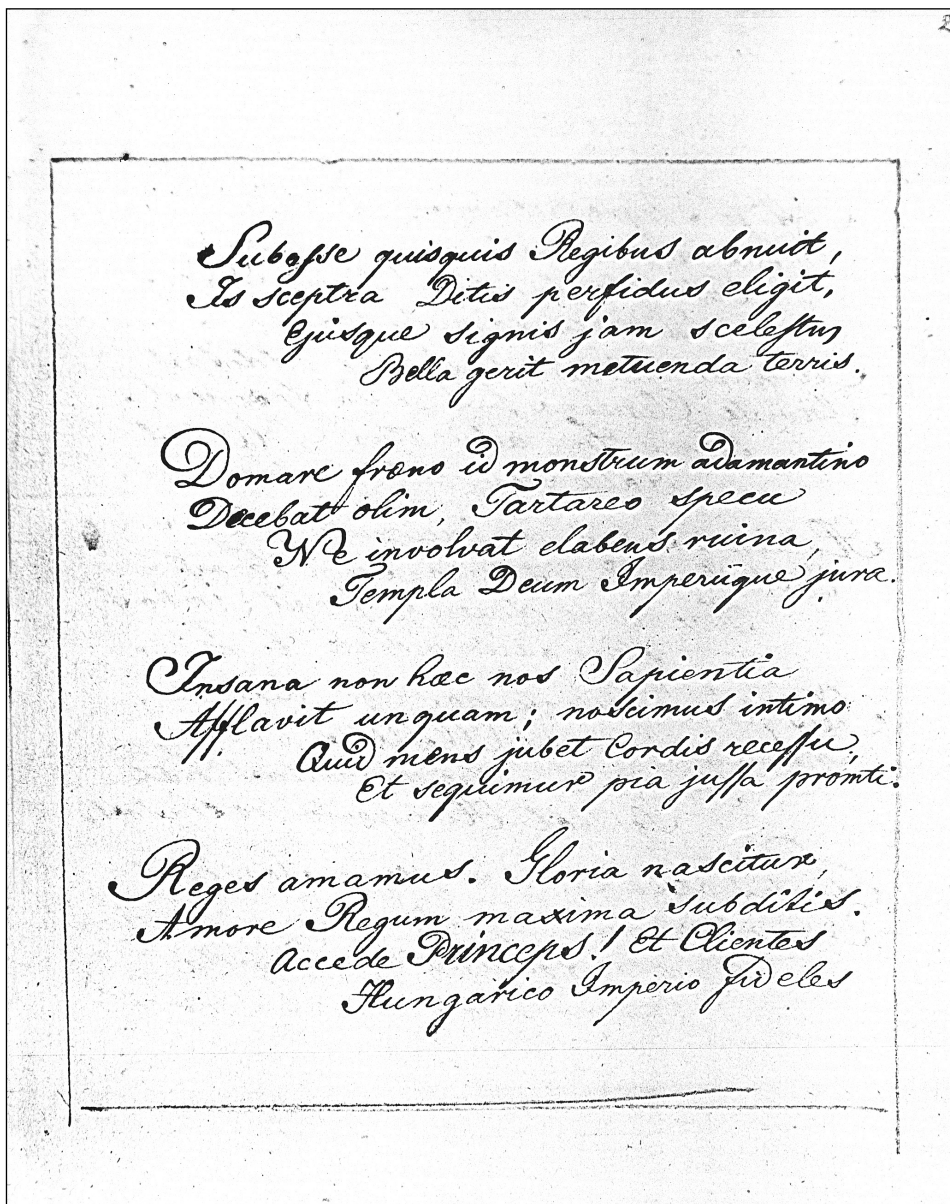 Subesse quisquis Regibus abnuit,
Is sceptra Ditis perfidus eligit,
Ejusque signis jam scelestus
Bella gerit metuenda terris.
Domare fræno id monstrum adamantino
Decebat olim, Tartareo specu
Ne involvat elabens ruina,
Templa Deum Imperiique jura.
Insana non hæc nos Sapientia
Afflavit unquam; noscimus intimo
Quid mens jubet Cordis recessu,
Et sequimur pia jussa promti.
Reges amamus. Gloria nascitur,
Amore Regum maxima subditis.
Accede Princeps! Et Clientes
Hungarico Imperio fideles